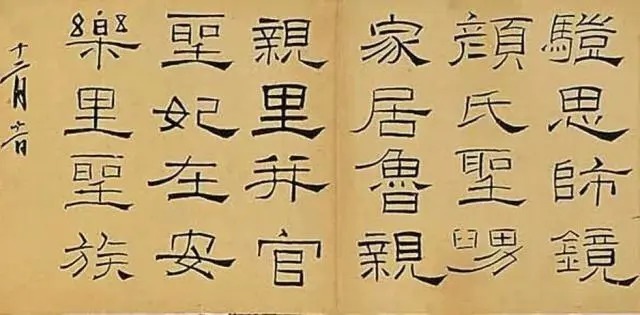 思師鏡
顏氏聖舅
家居魯親
親里并官
聖妃在安
樂里聖族
十二月